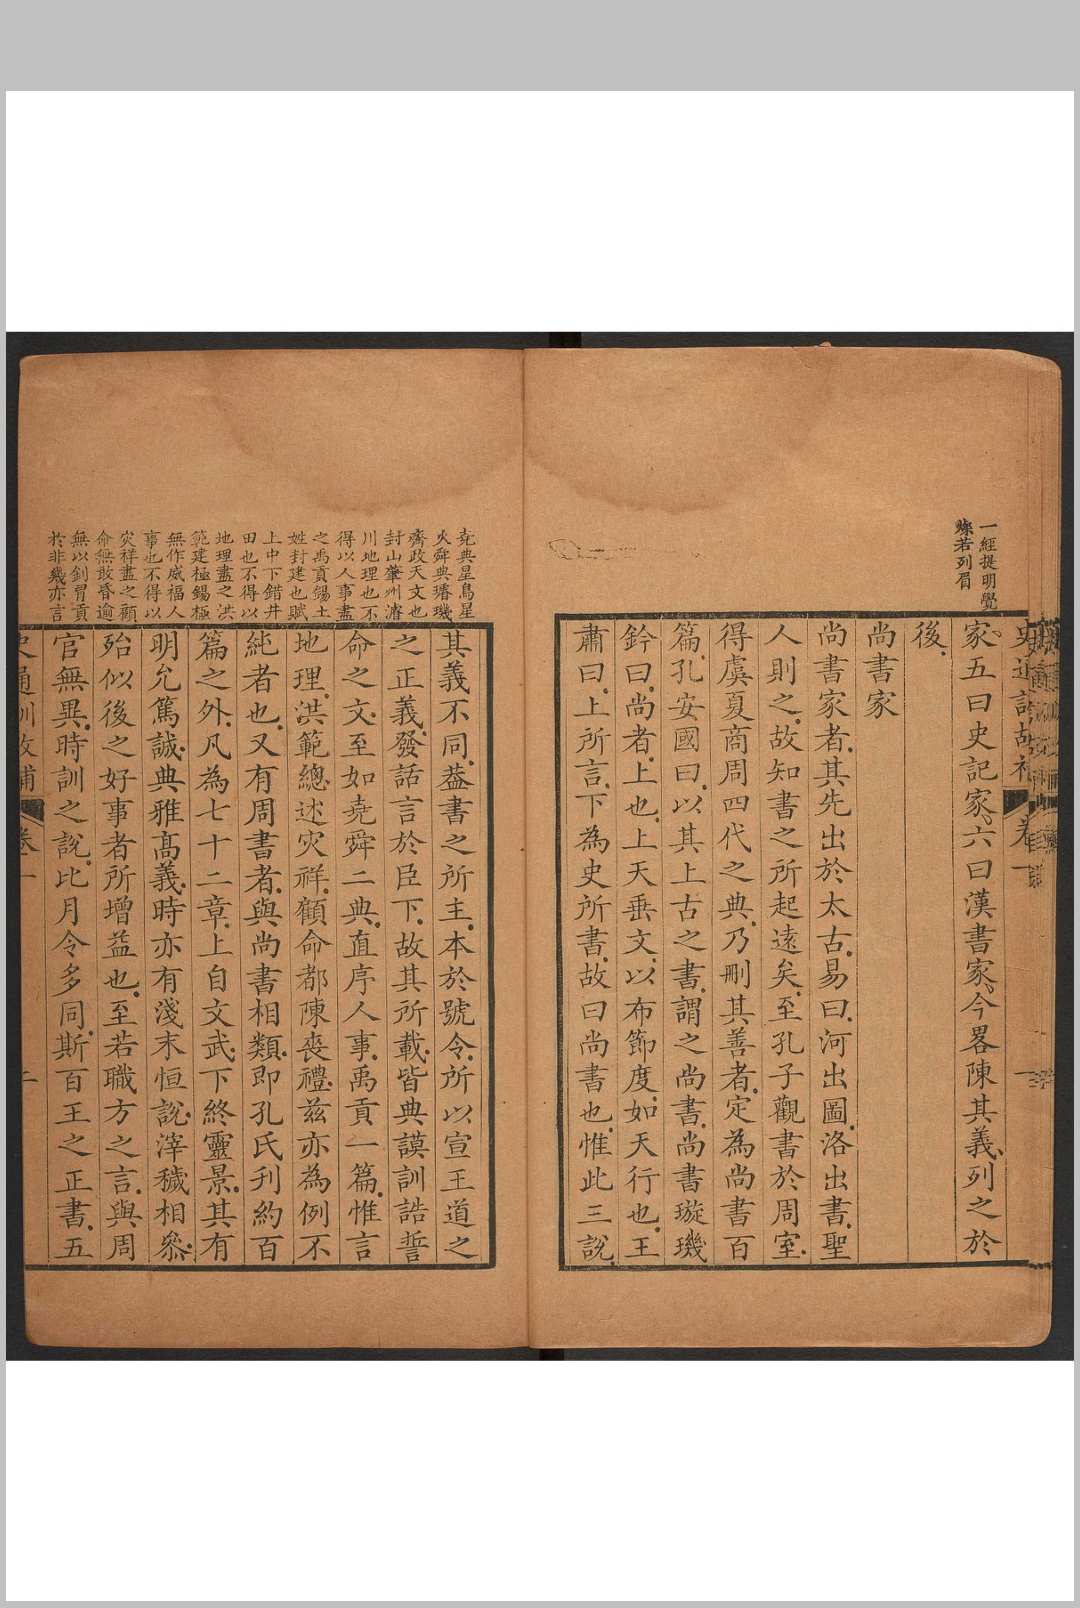 一經提明覺
燦若列眉
家五曰史記家六曰漢書家今畧陳其義列之於
後
尚書家
尚書家者其先出於太古易曰河出圖洛出書聖
人則之故知書之所起遠矣至孔子觀書於周室
得虞夏商周四代之典乃刪其善者定為尚書百
篇孔安國曰以其上古之書謂之尚書尚書璇璣
鈐曰尚者上也上天垂文以布節度如天行也王
肅曰上所言下為史所書故曰尚書也惟此三說
堯典星鳥星
火舜典璿璣
齊政天文也
封山肇州濬
川地理也不
得以人事盡
之禹貢錫土
姓封建也賦
上中下錯井
田也不得以
地理盡之洪
範建極錫極
無作威福人
事也不得以
灾祥盡之顧
命無敢昏逾
無以釗冒貢
於非幾亦言
其義不同葢書之所主本於號令所以宣王道之
之正義發話言於臣下故其所載皆典謨訓誥誓
命之文至如堯舜二典直序人事禹貢一篇惟言
地理洪範總述灾祥顧命都陳喪禮茲亦為例不
純者也又有周書者與尚書相類即孔氏刊約百
篇之外凡為七十二章上自文武下終靈景其有
明允篤誠典雅高義時亦有淺末恒說滓穢相叅
殆似後之好事者所增益也至若職方之言與周
官無異時訓之說比月令多同斯百王之正書五